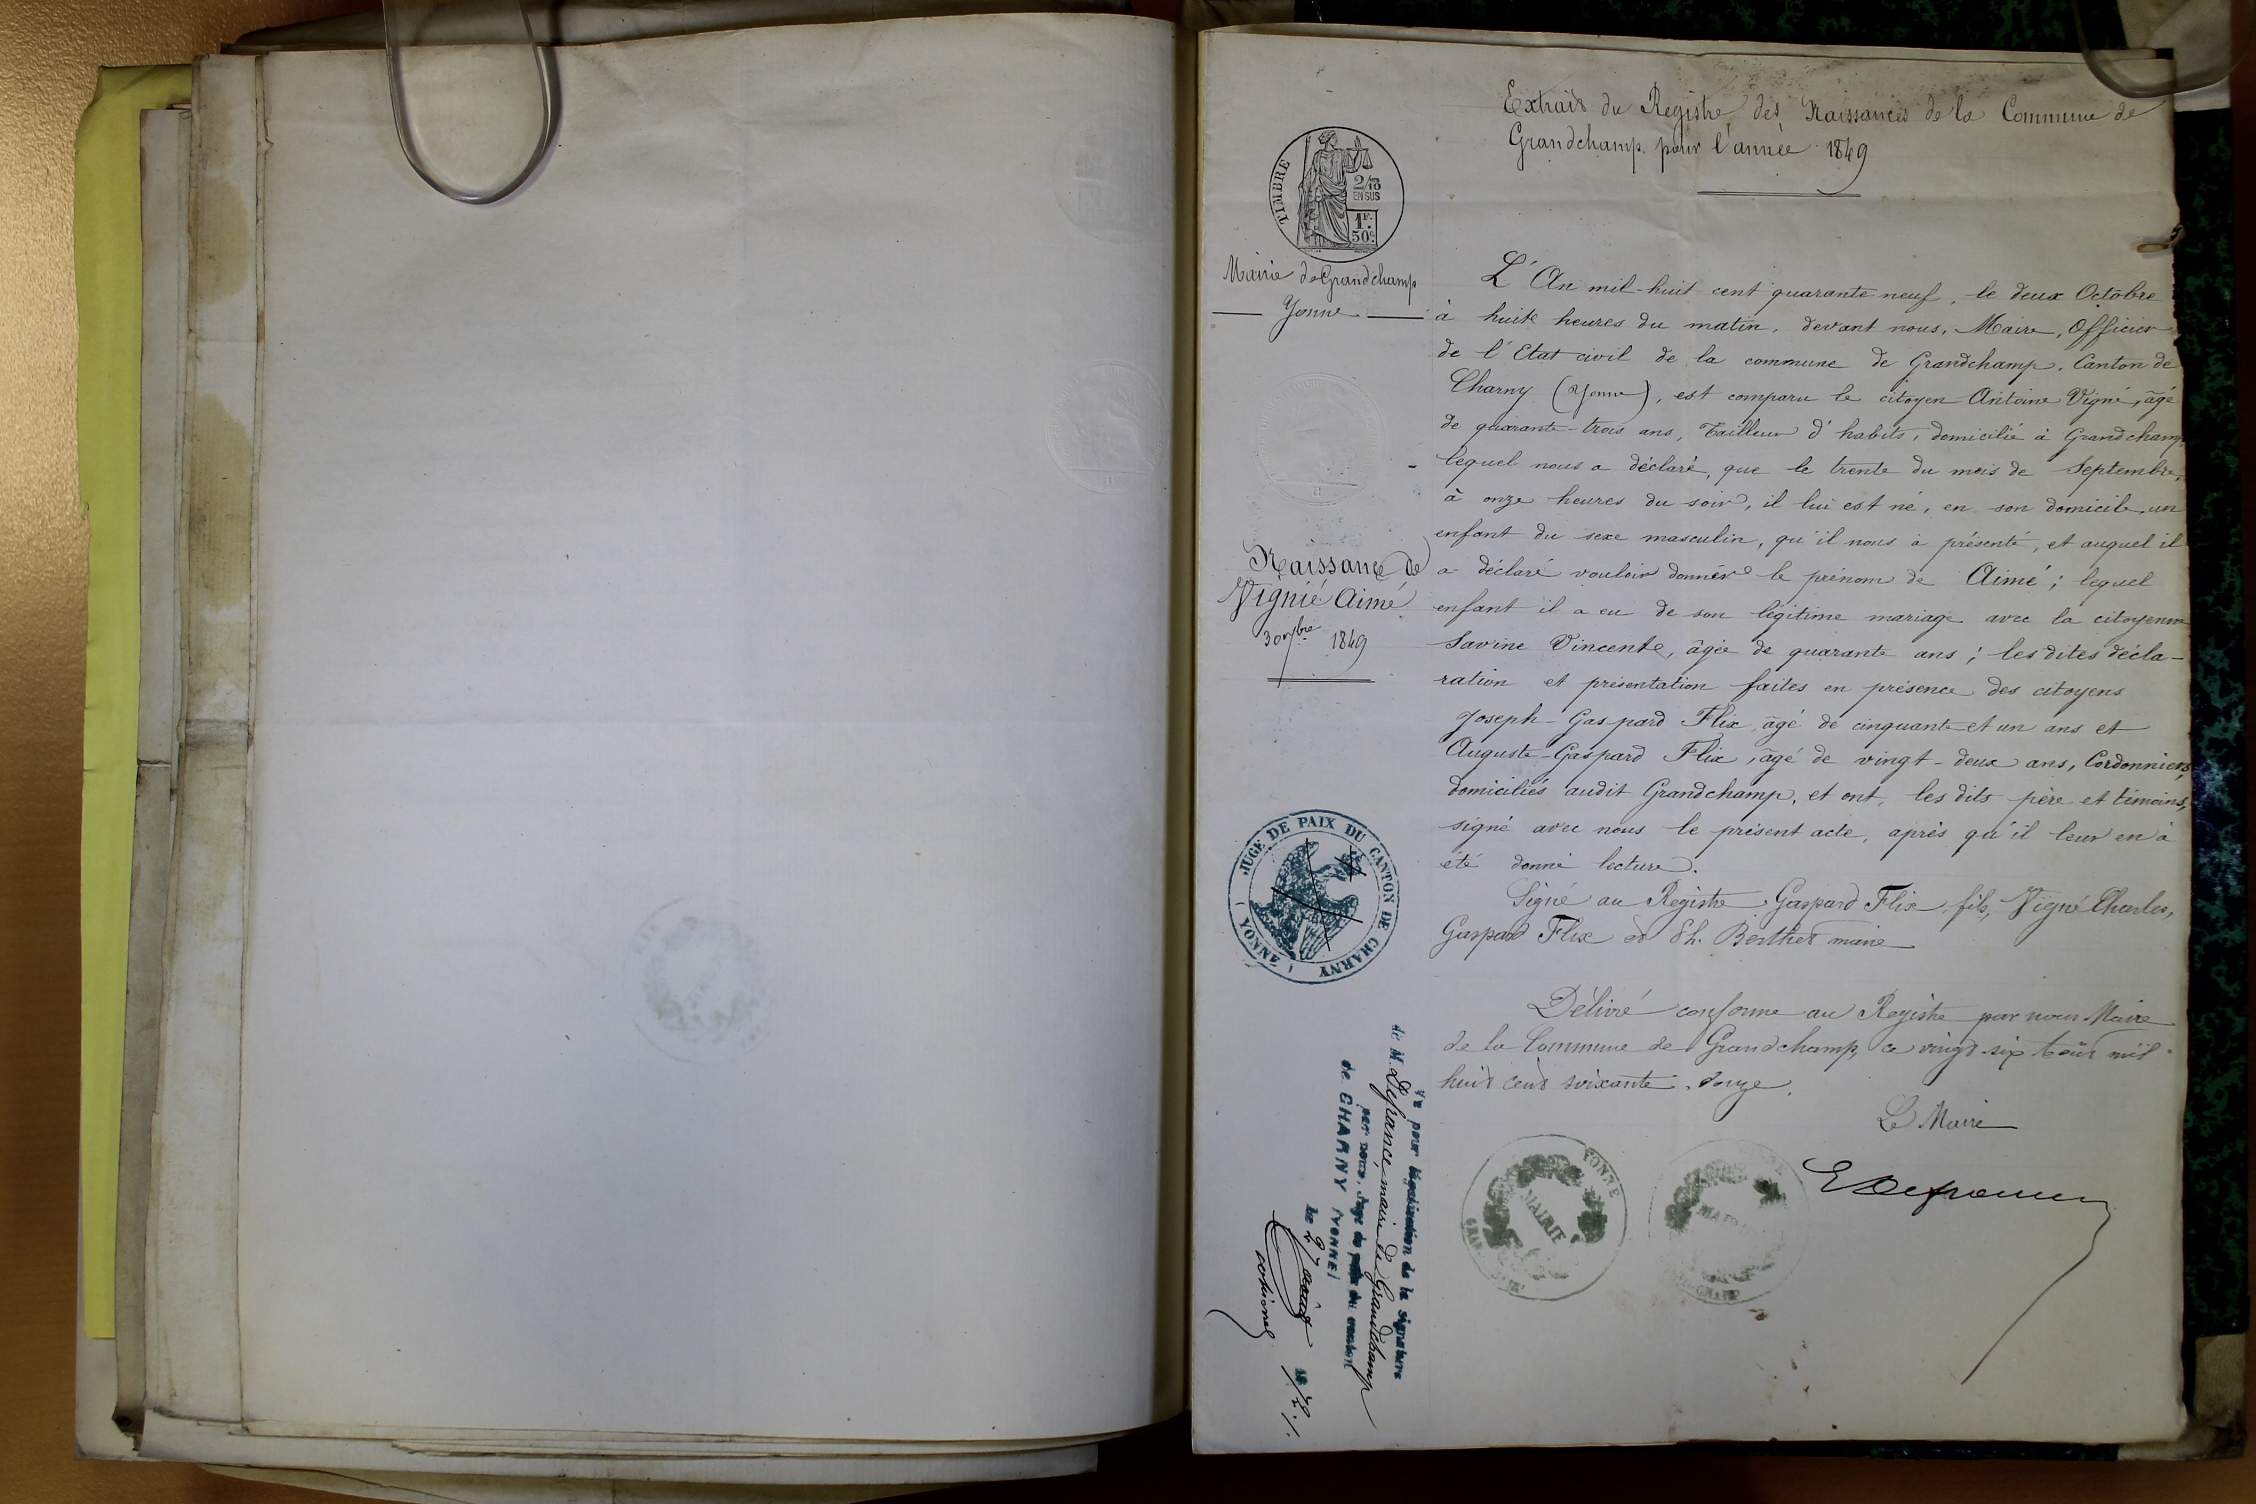 Extrait du Registre des Naissances de la Commune de
Grandchamp pour l'année 1849
TIMBRE
2/10
EN SUS
1F.
50c.
Mairie de Grandchamp
Yonne
L'An mil-huit cent quarante neuf, le deux Octobre
à huite heures du matin, devant nous, Maire, Officier
de l'Etat civil de la commune de Grandchamp, Canton de
Charny (Yonne), est comparu le citoyen Antoine Vigné, âgé
de quarante-trois ans, Tailleur d'habits, domicilié à Grandchamp
lequel nous a déclaré, que le trente du mois de Septembre,
à onze heures du soir, il lui est né, en son domicile, un
enfant du sexe masculin, qu'il nous à présenté, et auquel il
a déclaré vouloir donner le prénom de Aimé; lequel
enfant il a eu de son légitime mariage avec la citoyenne
Savine Vincente, âgée de quarante ans; les dites décla-
ration et présentation faites en présence des citoyens
Joseph-Gaspard Flix, âgé de cinquante et un ans et
Auguste-Gaspard Flix, âgé de vingt-deux ans, Cordonniers,
domiciliés audit Grandchamp, et ont, les dits père et témoins,
signé avec nous le présent acte, après qu'il leur en à
été donné lecture.
Signé au Registre Gaspard Flix fils, Vigné Charles,
Gaspard Flix et Berthet maire
Naissance de
Vignié Aimé
30 7bre 1849
JUGE DE PAIX DU CANTON DE CHARNY (YONNE)
Délivré conforme au Registre par nous Maire
de la Commune de Grandchamp, ce vingt-six Août mil
huit cent soixante-douze.
Le Maire
EDefrance
YONNE
MAIRIE
MAIRIE
CHAMP
Vu pour légalisation de la signature
de M. Defrance, maire de Grandchamp
par nous, Juge de paix du canton
de CHARNY (YONNE)
Le 27 août 1872